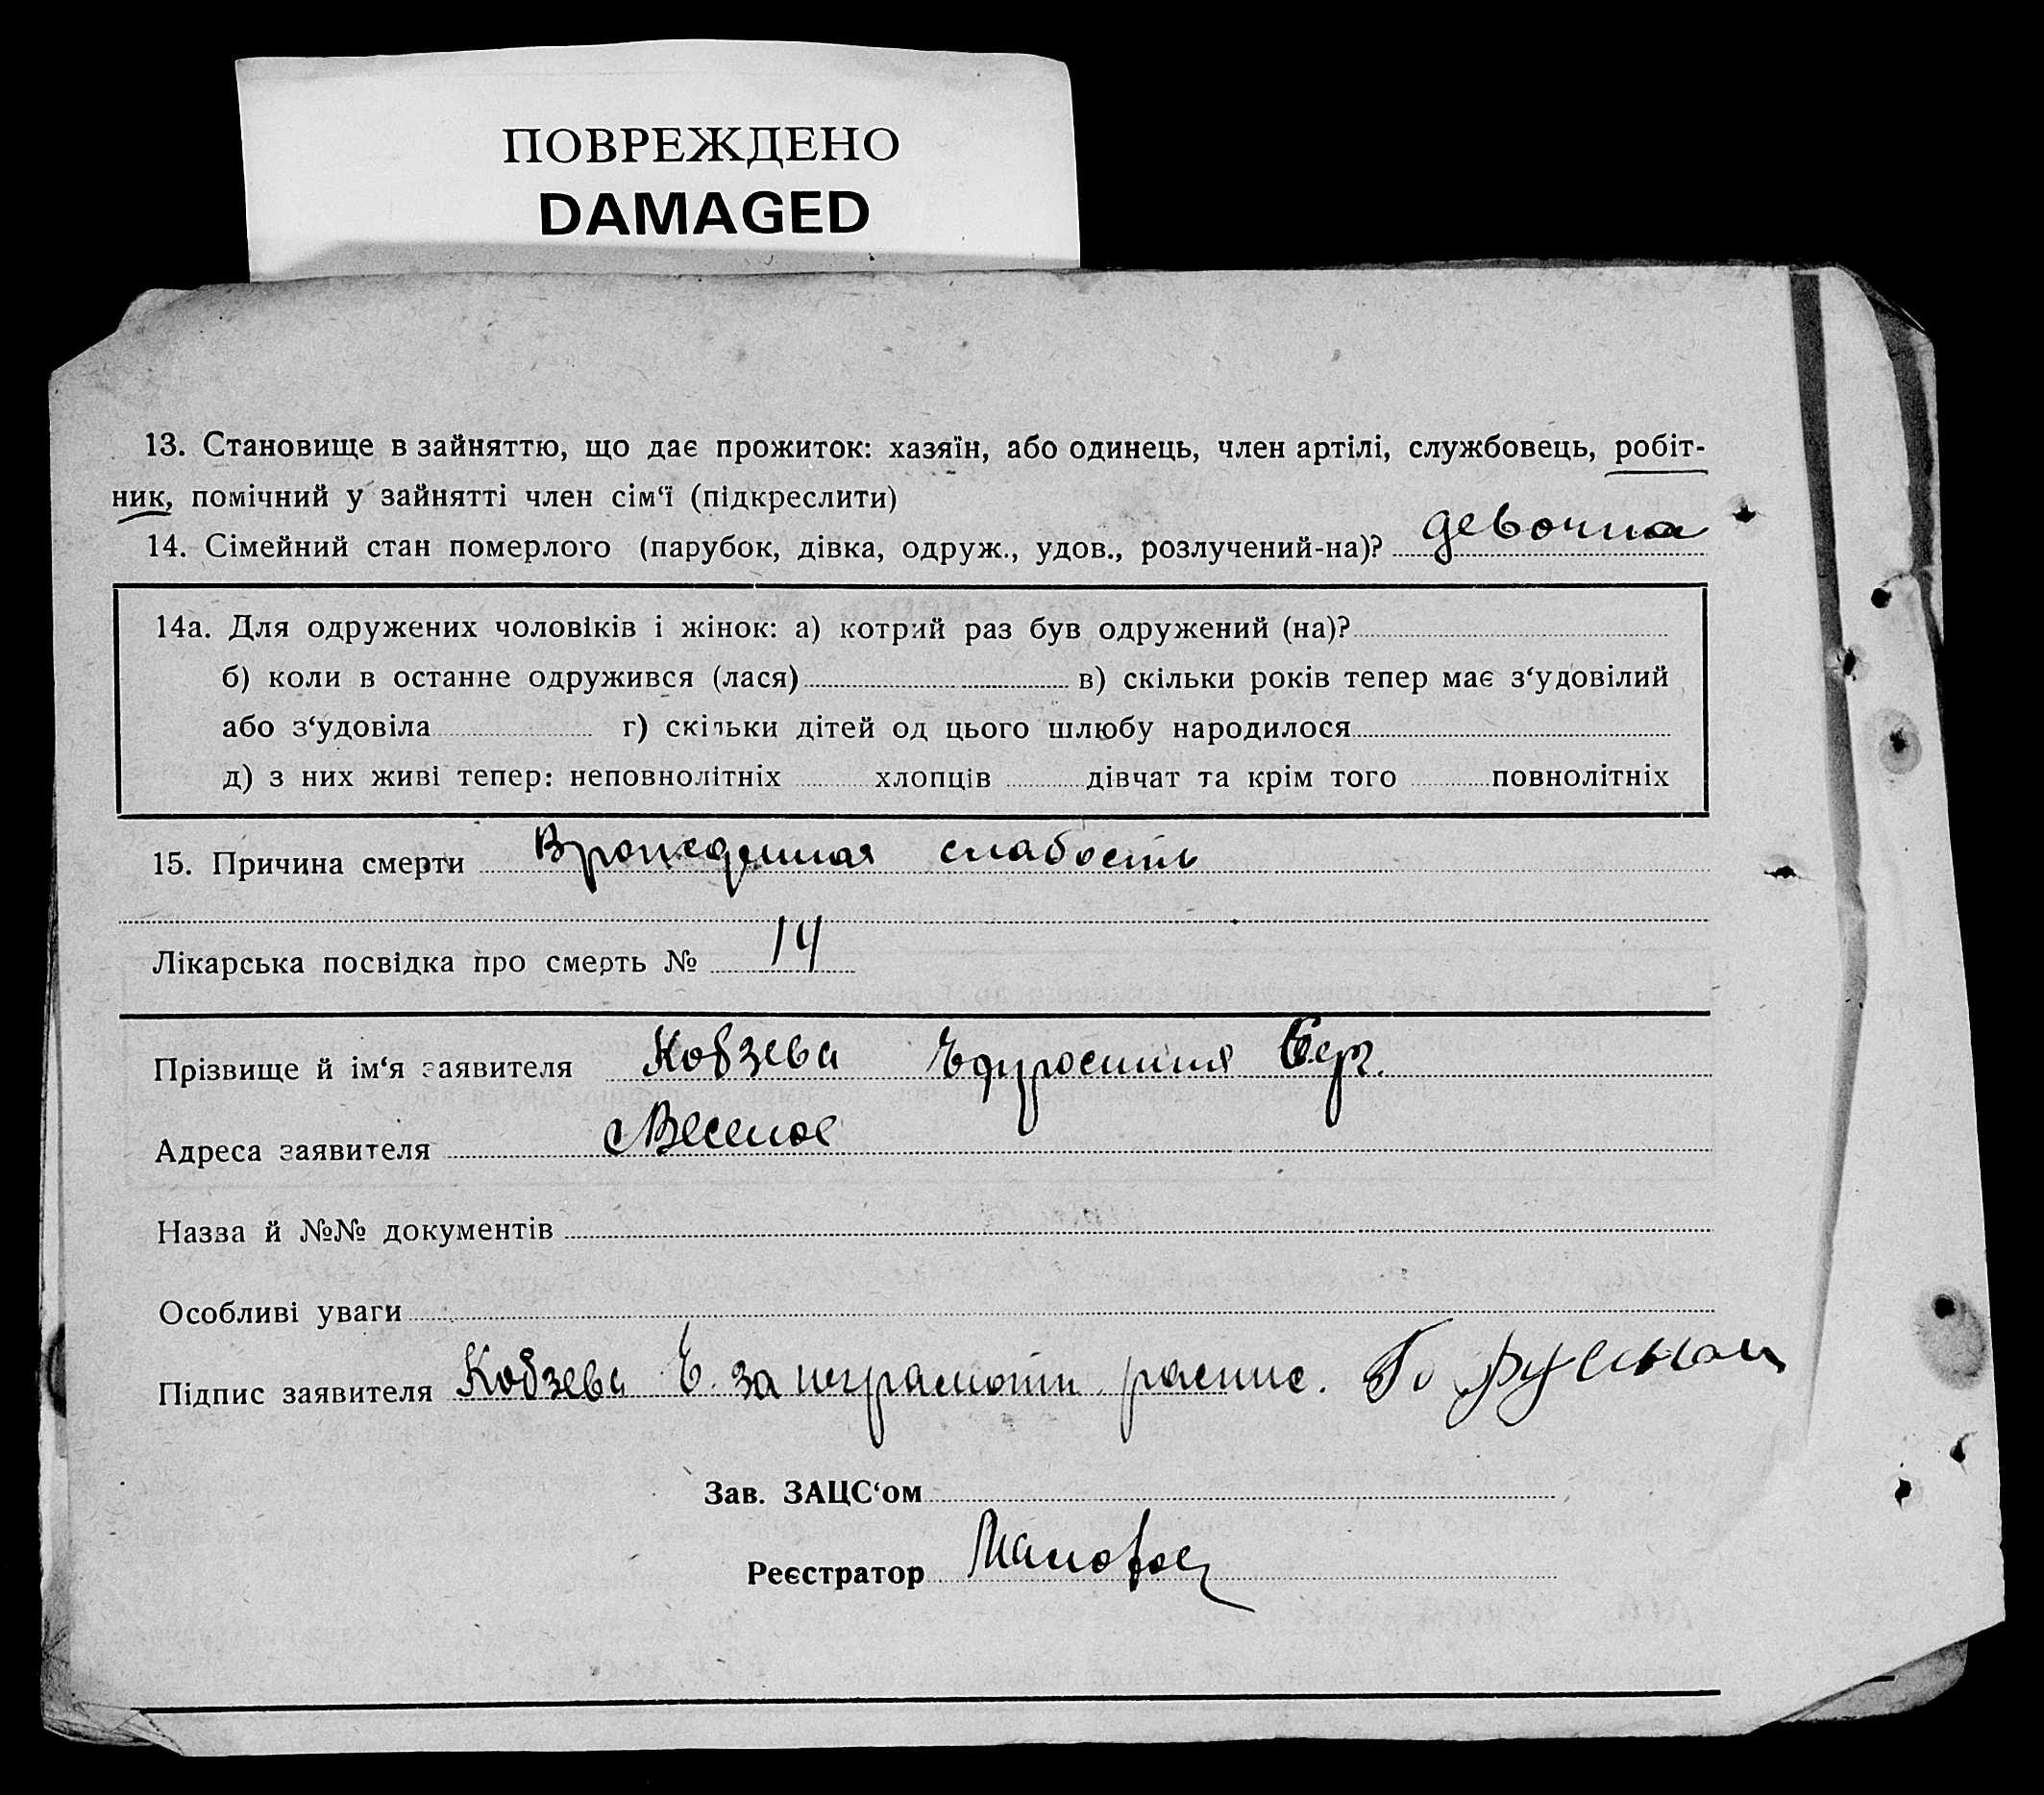 ПОВРЕЖДЕНО
DAMAGED
13. Становище в зайняттю, що дає прожиток: хазяїн, або одинець, член артілі, службовець, робіт-
ник, помічний у зайнятті член сім‘ї (підкреслити)
14. Сімейний стан померлого (парубок, дівка, одруж., удов., розлучений-на)? девочка
14а. Для одружених чоловіків і жінок: а) котрий раз був одружений (на)?
б) коли в останне одружився (лася) в) скільки років тепер має з‘удовілий
або з‘удовіла г) скільки дітей од цього шлюбу народилося
д) з них живі тепер: неповнолітніх хлопців дівчат та крім того повнолітніх
15. Причина смерти Врожденная слабость
Лікарська посвідка про смерть № 14
Прізвище й ім‘я заявителя Кобзева Ефросиния Сер.
Адреса заявителя с Веселое
Назва й №№ документів
Особливі уваги
Підпис заявителя Кобзева Е. за неграмотн. распис.
Зав. ЗАЦС‘ом
Реєстратор